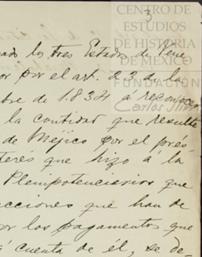 3
CENTRO DE
ESTUDIOS
DE HISTORIA
DE MÉXICO
FUNDACIÓN
Carlos Slim
los tres Estados de
por el art. 22 de la
bre de 1834 á
la cantidad que resulte
de Méjico por el pres-
teres que hizo á la
Plenipotenciarios que
acciones que han de
los pagamentos, que
á cuenta de él, se de-